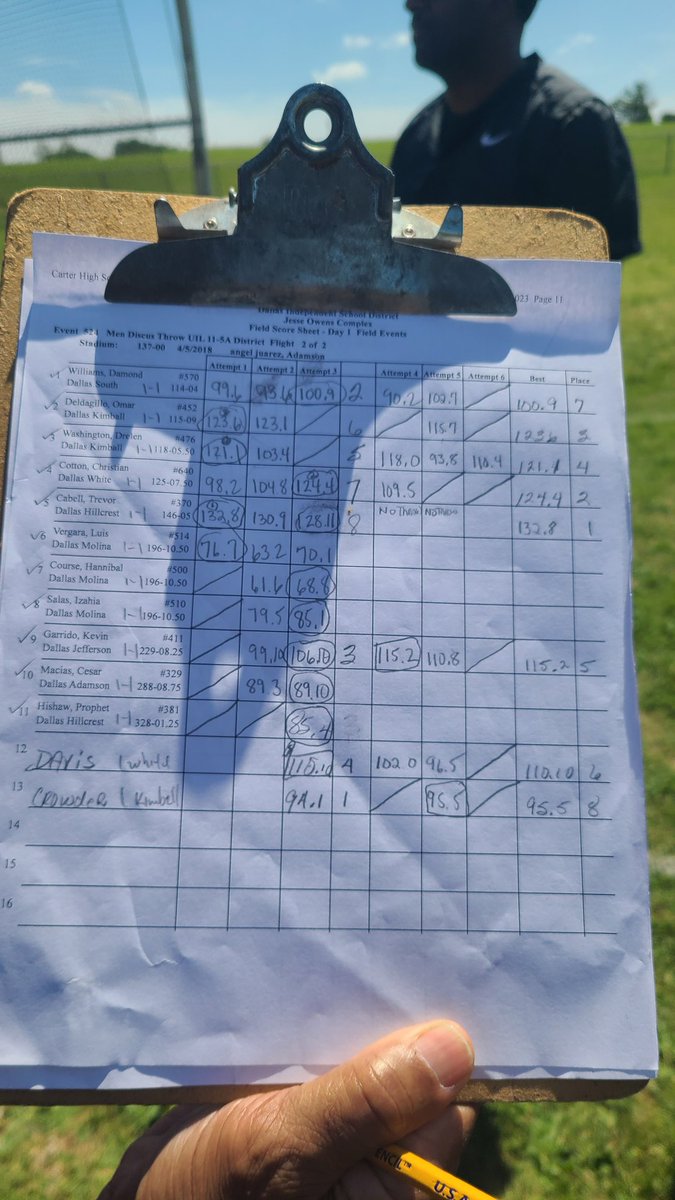 Carter High
023 Page 11
Dallas Independent School District
Jesse Owens Complex
Field Score Sheet - Day 1 Field Events
Event 524 Men Discus Throw UIL 11-5A District Flight 2 of 2
Stadium: 137-00 4/5/2018 angel juarez, Adamson
Attempt 1 Attempt 2 Attempt 3 Attempt 4 Attempt 5 Attempt 6 Best Place
1 Williams, Damond #570
Dallas South 1-1 114-04 99.6 93.6 100.9 2 90.2 102.9 100.9 7
2 Deldagillo, Omar #452
Dallas Kimball 1-1 115-09 123.6 123.1 6 115.7 123.6 3
3 Washington, Drelen #476
Dallas Kimball 1-1 118-05.50 121.1 103.4 5 118.0 93.8 110.4 121.1 4
4 Cotton, Christian #640
Dallas White 1-1 125-07.50 98.2 104.8 124.4 7 109.5 124.4 2
5 Cabell, Trevor #370
Dallas Hillcrest 1-1 146-05 132.8 130.9 128.11 8 NO THROW NO THROW 132.8 1
6 Vergara, Luis #514
Dallas Molina 1-1 196-10.50 76.7 63.2 70.1
7 Course, Hannibal #500
Dallas Molina 1-1 196-10.50 61.6 68.8
8 Salas, Izahia #510
Dallas Molina 1-1 196-10.50 79.5 85.1
9 Garrido, Kevin #411
Dallas Jefferson 1-1 229-08.25 99.10 106.10 3 115.2 110.8 115.2 5
10 Macias, Cesar #329
Dallas Adamson 1-1 288-08.75 89.3 89.10
11 Hishaw, Prophet #381
Dallas Hillcrest 1-1 328-01.25 85.4
12 DAVIS 1 White 115.10 4 102.0 96.5 110.10 6
13 CROWDER 1 Kimball 94.1 1 95.5 95.5 8
14
15
16
ENCIL™
U.S.A